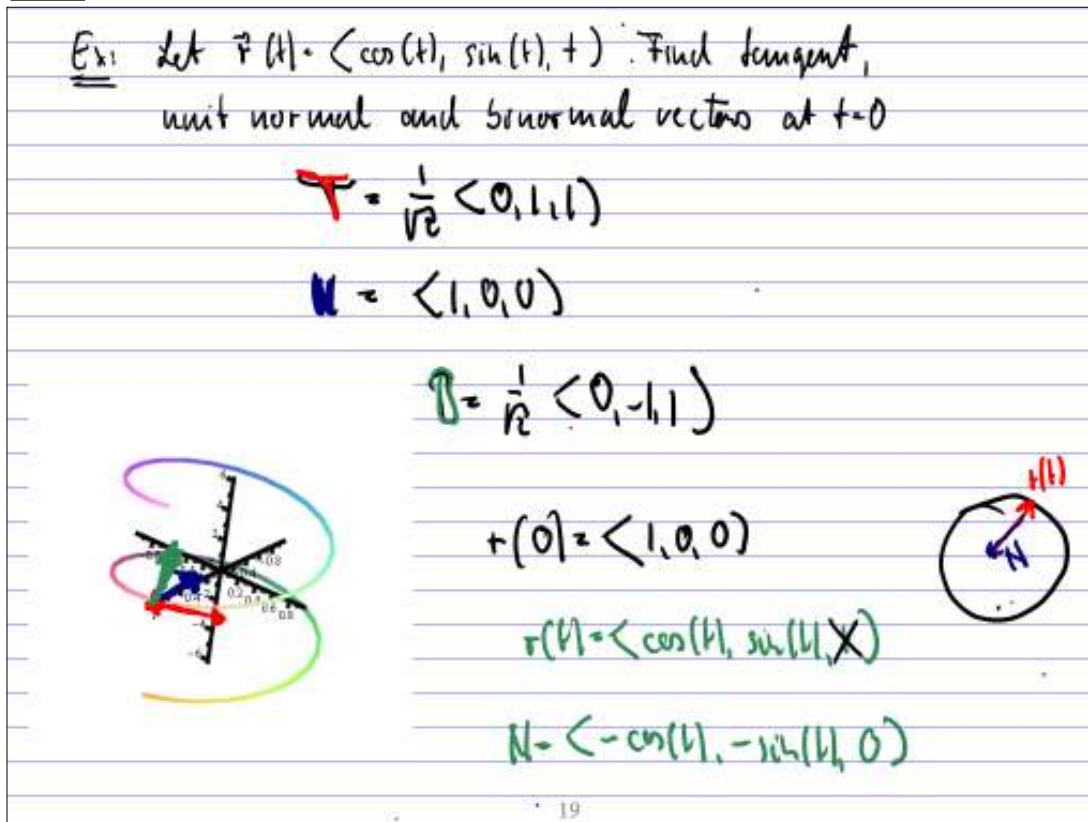 Ex: Let r⃗(t) = <cos(t), sin(t), t). Find tangent,
unit normal and binormal vectors at t=0
T = 1/√2 <0,1,1)
N = <1,0,0)
B = 1/√2 <0,-1,1)
r(0) = <1,0,0)
r(t)
N
r(t) = <cos(t), sin(t), X)
N = <-cos(t), -sin(t), 0)
19